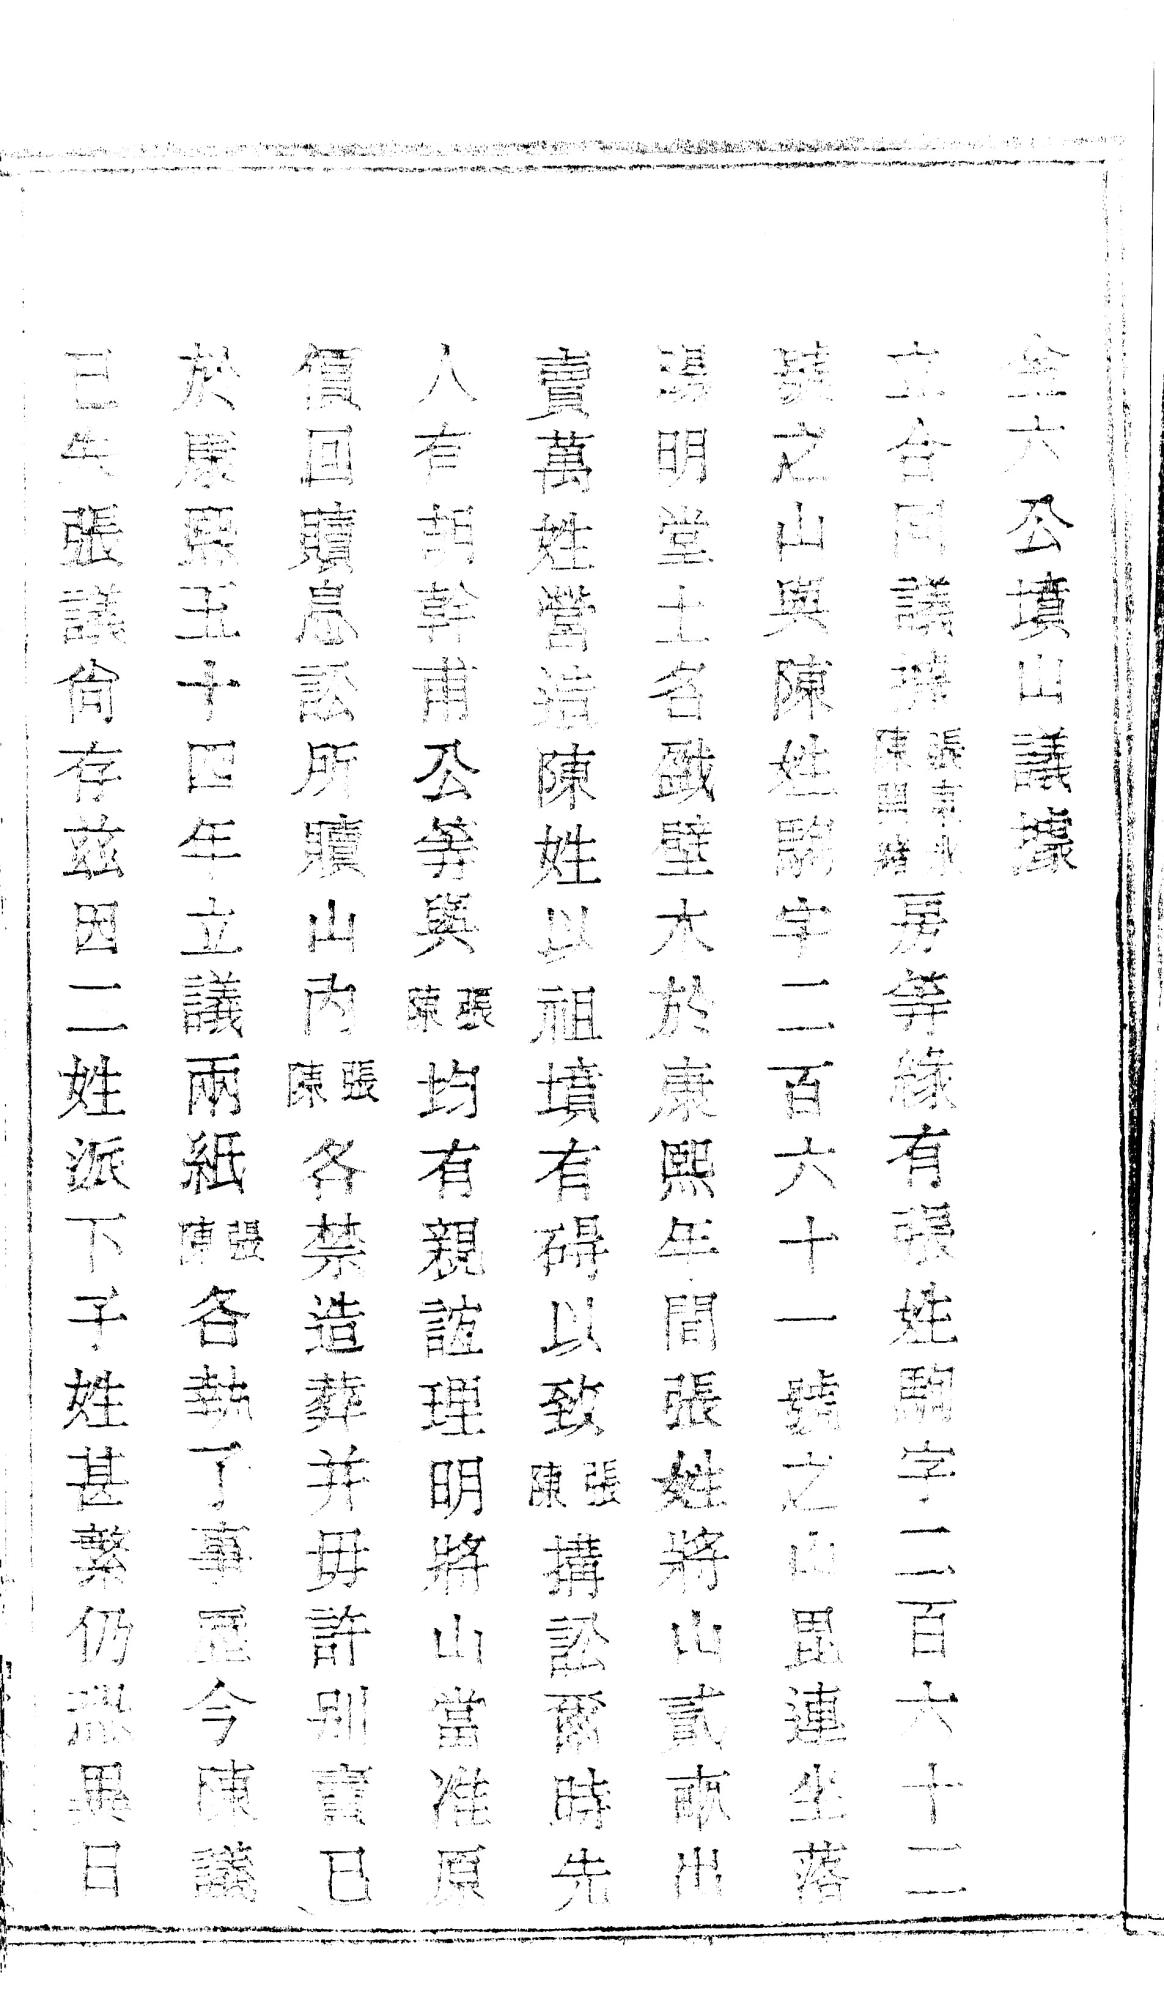 全六公墳山議據
立合同議據張陳房等緣有張姓駒字二百六十二
號之山與陳姓駒字二百六十一號之山毘連坐落
湯明堂土名壁木於康熙年間張姓將山貳畝出
賣萬姓營造陳姓以祖墳有碍以致張陳搆訟爾時先
人有胡幹甫公等與張陳均有親誼理明將山當准原
價回贖息訟所贖山內張陳各禁造葬并毋許別賣已
於康熙五十四年立議兩紙張陳各執了事歷今陳議
已失張議尙存茲因二姓派下子姓甚繁仍恐異日